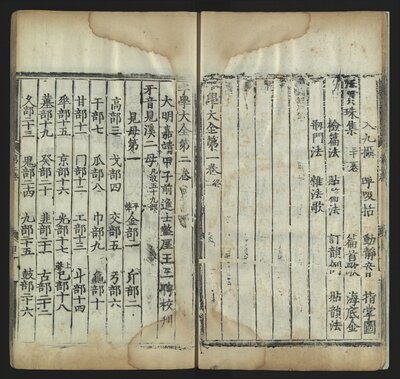 入九攝 呼吸括 動靜音 指掌圖
珠集 篇首歌 海底金
檢篇法 訂韻 貼韻法
門法 雜法歌
學大全第一卷
學大全第二卷
大明嘉靖甲子前進士盩厔王三聘校刋
牙音見溪二母
見母第一 金部一 斤部二
高部三 戈部四 交部五 弓部六
干部七 瓜部八 巾部九 龜部十
甘部十一 冂部十二 工部十三 斗部十四
部十五 京部十六 光部十七 部十八
部十九 癸部二十 古部二十二
久部二十三 杲部二十四 九部二十五 鼓部二十六